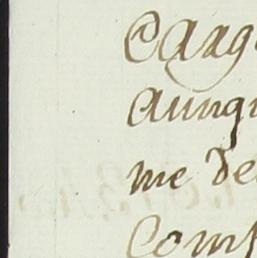 Carg
aunqu
me de
Comp